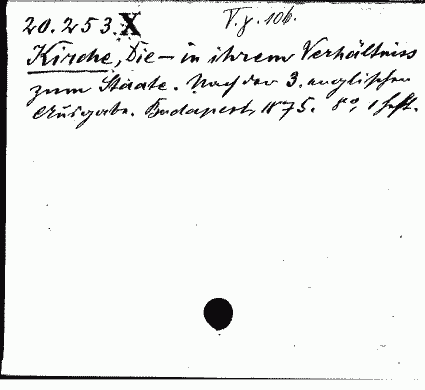 20.253. X T.g. 106.
Kirche, Die – in ihrem Verhältniss
zum Staate. Nach der 3. englischen
Ausgabe. Budapest, 1875. 8°, 1 Heft.